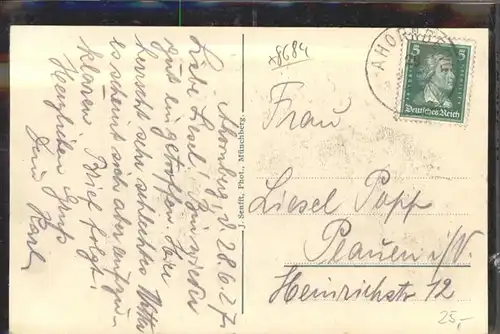 Ahornberg, d. 28.6.27.
Liebe Liesel! Bin wieder
gut eingetroffen. Hier
herrscht sehr schlechtes Wetter
es scheint sich aber aufzu-
klären. Brief folgt.
Herzlichen Gruß
Dein Karl
J. Senfft, Phot., Münchberg.
x8684
AHORNBE
5 5
Deutsches Reich
Frau
Liesel Popp
Plauen i/V.
Heinrichstr 12
25,-